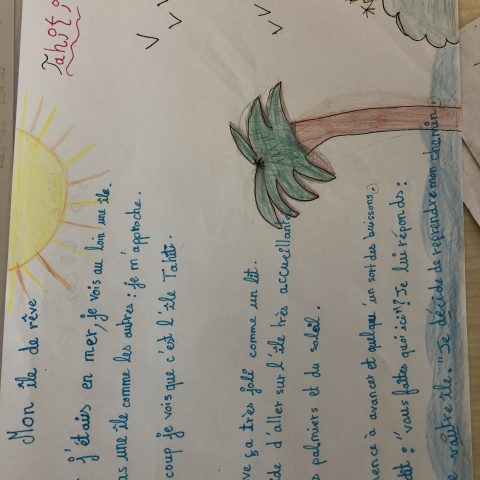 Tahiti
Mon île de rêve
j'étais en mer, je vois au loin une île.
as une île comme les autres : je m'approche.
coup je vois que c'est l'île Tahiti.
ve ça très joli comme un lit.
de d'aller sur l'île très accueillante
s palmiers et du soleil.
mence à avancer et quelqu'un sort des buissons.
dit : "vous faites quoi ici"? Je lui réponds :
e vautre île." Je décide de reprendre mon chemin.